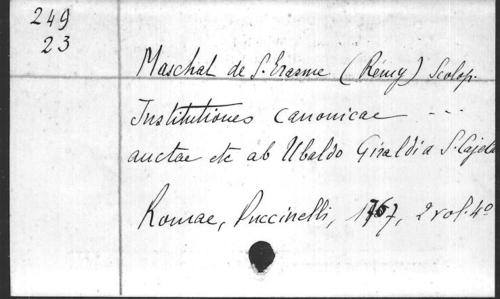 249
23
Maschat de S. Erasme (Rémy) Scolop.
Institutiones canonicae ---
auctae etc ab Ubaldo Giraldi a S. Cajeta
Romae, Puccinelli, 1767, 2 vol. 4°